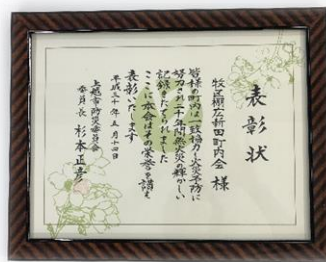 表彰状
牧区棚広新田町内会 様
皆様の町内は一致協力し火災予防に
努力され二十年間無火災の輝かしい
記録をたてられました
ここに本会はその栄誉を讃え
表彰いたします
平成三十年五月十四日
上越市防災委員会
会長 杉本正彦